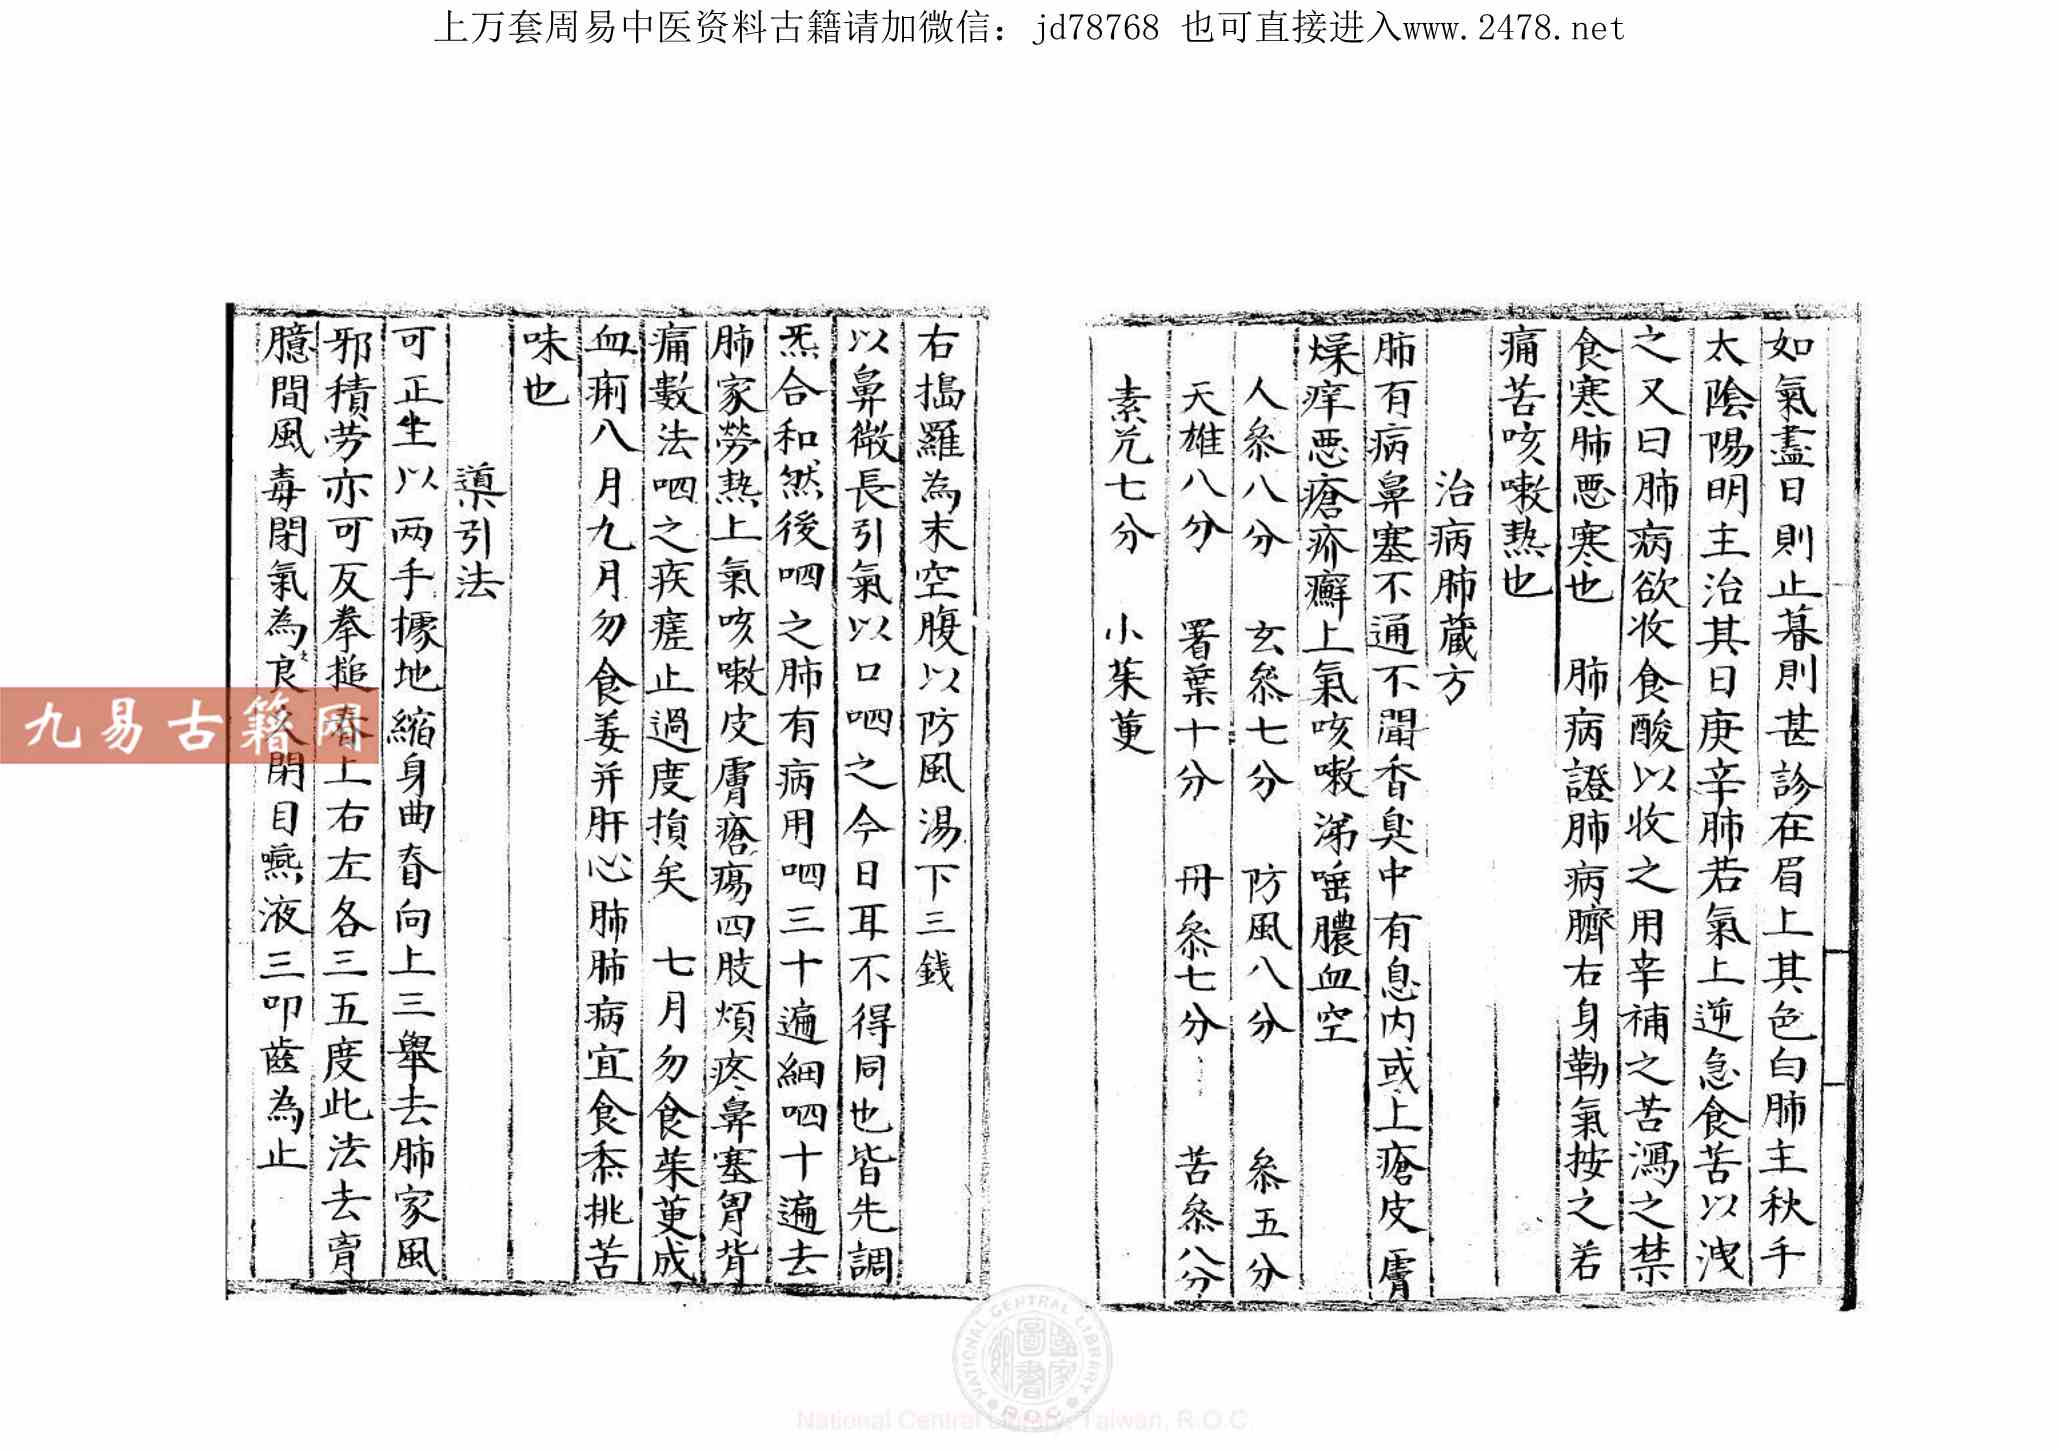 上万套周易中医资料古籍请加微信：jd78768 也可直接进入www.2478.net
如氣盡日則止暮則甚診在眉上其色白肺主秋手
太陰陽明主治其日庚辛肺若氣上逆急食苦以洩
之又曰肺病欲收食酸以收之用辛補之苦瀉之禁
食寒肺悪寒也 肺病證肺病臍右身勒氣按之若
痛苦咳嗽熱也
治病肺蔵方
肺有病鼻塞不通不聞香臭中有息内或上瘡皮膚
燥痒悪瘡疥癬上氣咳嗽涕唾膿血空
人叅八分 玄叅七分 防風八分 叅五分
天雄八分 署葉十分 丹叅七分 苦叅八分
素兊七分 小茱萸
右搗羅為末空腹以防風湯下三錢
以鼻微長引氣以口呬之今日耳不得同也皆先調
炁合和然後呬之肺有病用呬三十遍細呬十遍去
肺家勞熱上氣咳嗽皮膚瘡瘍四肢煩疼鼻塞胃背
痛數法呬之疾瘥止過度損矣 七月勿食茱萸成
血痢八月九月勿食姜并肝心肺肺病宜食黍桃苦
味也
導引法
可正坐以两手據地縮身曲脊向上三舉去肺家風
邪積劳亦可反拳搥脊上右左各三五度此法去胷
臆間風毒閉氣為良久閉目嚥液三叩齒為止
九易古籍网
NATIONAL CENTRAL LIBRARY
R.O.C
國家圖書館
National Central Library, Taiwan, R.O.C